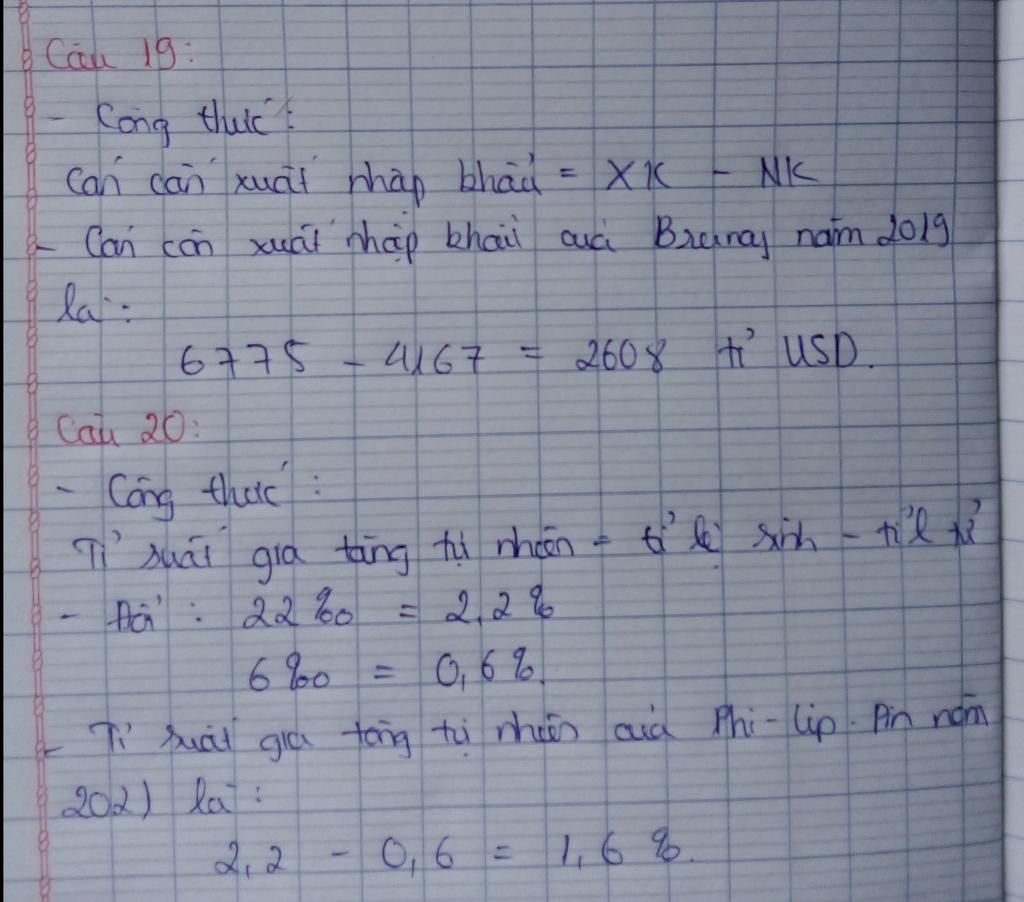 Câu 19:
- Công thức:
Cán cân xuất nhập khẩu = XK - NK
- Cán cân xuất nhập khẩu của Brunây năm 2019
là:
6775 - 4167 = 2608 tỉ USD.
Câu 20:
- Công thức:
Tỉ suất gia tăng tự nhiên = tỉ lệ sinh - tỉ lệ tử
- Đổi: 22‰ = 2,2%
6‰ = 0,6%.
- Tỉ suất gia tăng tự nhiên của Phi-lip-pin năm
2021 là:
2,2 - 0,6 = 1,6%.